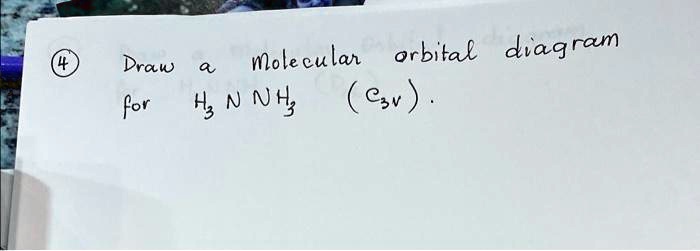 ④ Draw a Molecular orbital diagram
for H₃ N NH₃ (C₃ᵥ).